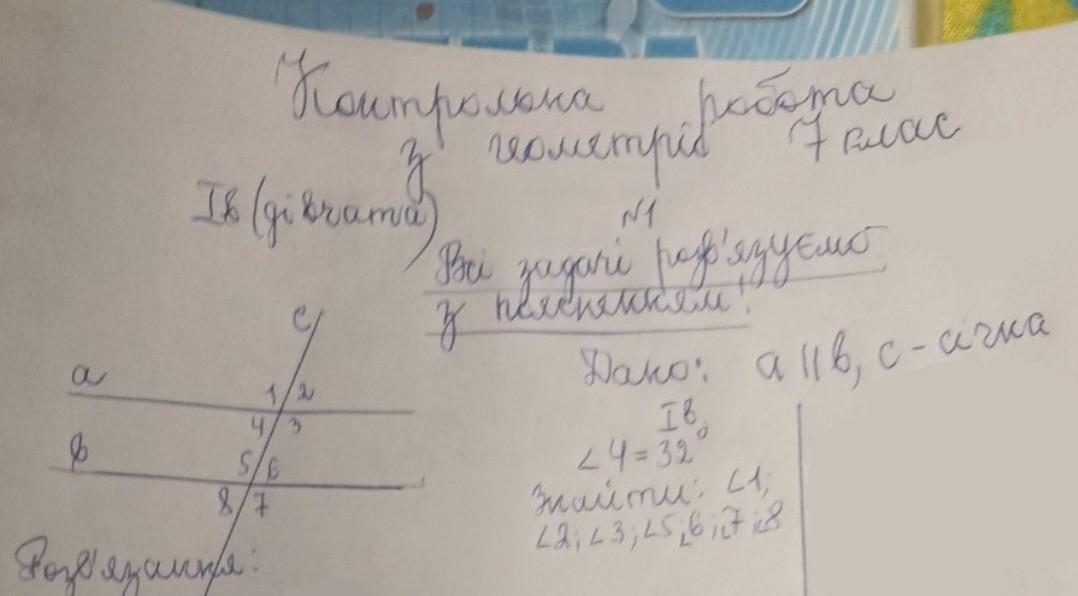 Контрольна робота
з геометрії 7 клас
Ів (дівчата)
№1
Всі задачі розв'язуємо
з поясненням!
Дано: a || b, c - січна
Ів.
∠4 = 32°
Знайти: ∠1;
∠2; ∠3; ∠5; ∠6; ∠7; ∠8
c
a
1 2
4 3
b
5 6
8 7
Розв'язання: